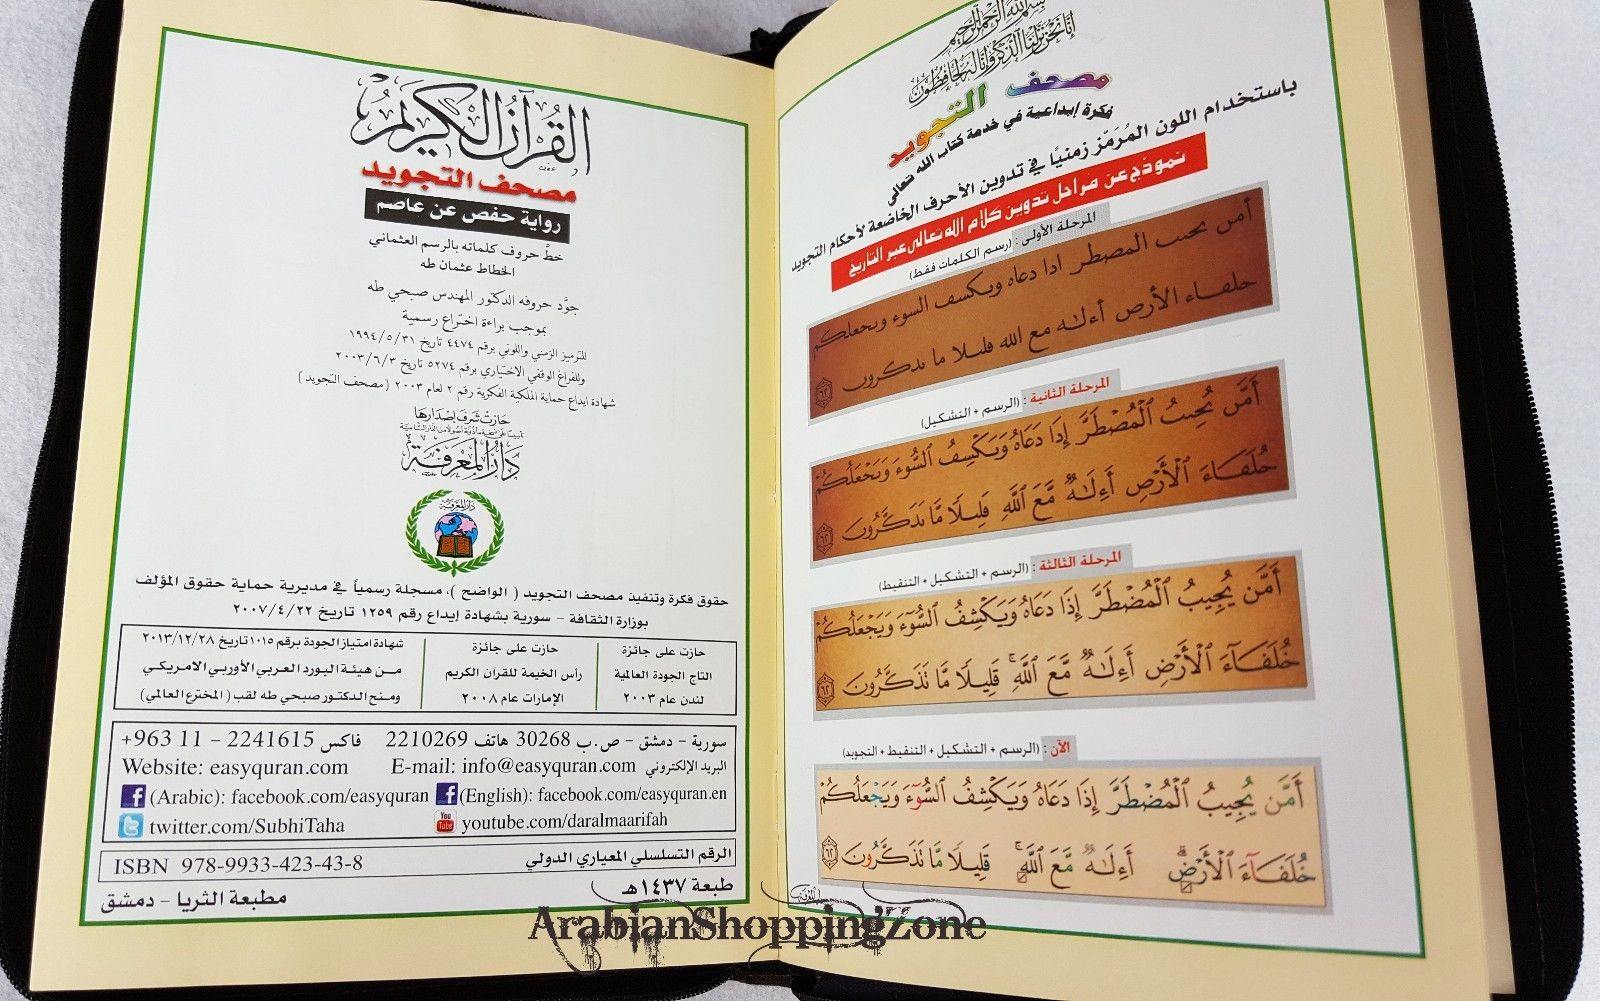 القرآن الكريم
مصحف التجويد
رواية حفص عن عاصم
خطَّ حروف كلماته بالرسم العثماني
الخطاط عثمان طه
جوَّد حروفه الدكتور المهندس صبحي طه
بموجب براءة اختراع رسمية
للترميز الزمني واللوني برقم ٤٤٧٤ تاريخ ١٩٩٤/٥/٣١
وللفراغ الوقفي الاختياري برقم ٥٢٧٤ تاريخ ٢٠٠٣/٦/٣
شهادة إيداع حماية الملكية الفكرية رقم ٢ لعام ٢٠٠٣ (مصحف التجويد)
حازت شرف إصدارها
دار المعرفة
دار المعرفة
حقوق فكرة وتنفيذ مصحف التجويد ( الواضح )، مسجلة رسمياً في مديرية حماية حقوق المؤلف
بوزارة الثقافة - سورية بشهادة إيداع رقم ١٢٥٩ تاريخ ٢٠٠٧/٤/٢٢
حازت على جائزة
التاج الجودة العالمية
لندن عام ٢٠٠٣
حازت على جائزة
رأس الخيمة للقرآن الكريم
الإمارات عام ٢٠٠٨
شهادة امتياز الجودة برقم ١٠١٥ تاريخ ٢٠١٣/١٢/٢٨
من هيئة البورد العربي الأوربي الامريكي
ومنح الدكتور صبحي طه لقب (المخترع العالمي)
سورية - دمشق - ص.ب 30268 هاتف 2210269 فاكس 2241615 - 11 963+
البريد الإلكتروني E-mail: info@easyquran.com Website: easyquran.com
(Arabic): facebook.com/easyquran (English): facebook.com/easyquran.en
twitter.com/SubhiTaha youtube.com/daralmaarifah
الرقم التسلسلي المعياري الدولي ISBN 978-9933-423-43-8
طبعة ١٤٣٧هـ
مطبعة الثريا - دمشق
بسم الله الرحمن الرحيم
إنا نحن نزلنا الذكر وإنا له لحافظون
مصحف التجويد
فكرة إبداعية في خدمة كتاب الله تعالى
باستخدام اللون المُرَمّز زمنيًا في تدوين الأحرف الخاضعة لأحكام التجويد
نموذج عن مراحل تدوين كلام الله تعالى عبر التاريخ
المرحلة الأولى : (رسم الكلمات فقط)
المرحلة الثانية : (الرسم + التشكيل)
المرحلة الثالثة : (الرسم + التشكيل + التنقيط)
أَمَّن يُجِيبُ ٱلْمُضْطَرَّ إِذَا دَعَاهُ وَيَكْشِفُ ٱلسُّوٓءَ وَيَجْعَلُكُمْ
خُلَفَآءَ ٱلْأَرْضِ أَءِلَٰهٌ مَّعَ ٱللَّهِ ۚ قَلِيلًا مَّا تَذَكَّرُونَ ٦٢
الآن : (الرسم + التشكيل + التنقيط + التجويد)
أَمَّن يُجِيبُ ٱلْمُضْطَرَّ إِذَا دَعَاهُ وَيَكْشِفُ ٱلسُّوٓءَ وَيَجْعَلُكُمْ
خُلَفَآءَ ٱلْأَرْضِ أَءِلَٰهٌ مَّعَ ٱللَّهِ ۚ قَلِيلًا مَّا تَذَكَّرُونَ ٦٢
ArabianShoppingZone